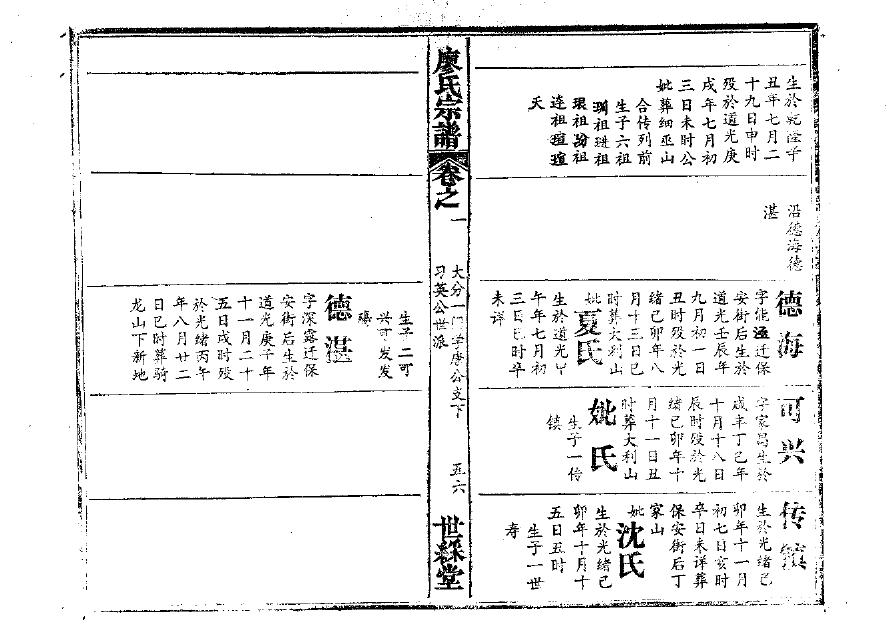 生於乾隆辛
丑年七月二
十九日申时
殁於道光庚
戌年七月初
三日未时公
妣葬细巫山
合传列前
生子六祖
琱祖琎祖
琅祖玢祖
琏祖瑄瑄
夭
沿德海德
湛
德海
字能涵迁保
安街后生於
道光壬辰年
九月初一日
丑时殁於光
绪己卯年八
月十三日巳
时葬大利山
妣夏氏
生於道光甲
午年七月初
三日巳时卒
未详
可兴
字家昌生於
咸丰丁巳年
十月十八日
辰时殁於光
绪己卯年十
月十一日丑
时葬大利山
妣氏
生子一传
镇
传镇
生於光绪己
卯年十一月
初七日亥时
卒日未详葬
保安街后丁
家山
妣沈氏
生於光绪己
卯年十月十
五日丑时
生子一世
寿
廖氏宗谱
卷之一
大分一门学唐公支下
习英公世派
五六
世䌽堂
生子二可
兴可发发
殤
德湛
字深露迁保
安街后生於
道光庚子年
十一月二十
五日戌时殁
於光绪丙午
年八月廿二
日巳时葬骑
龙山下新地